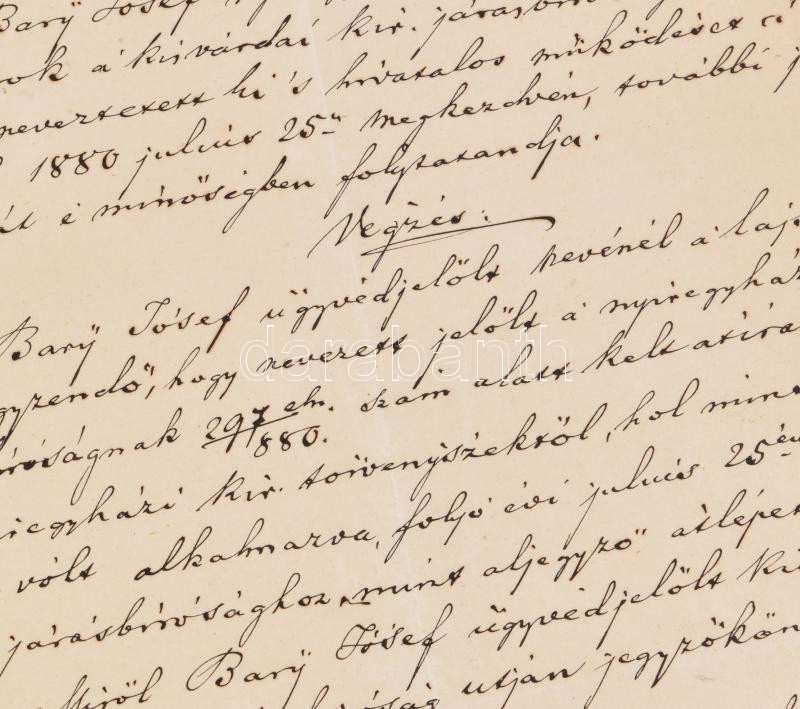 Barÿ József
rok a kisvárdai kir. járásbiró
neveztetett ki 's hivatalos müködését
1880 julius 25én megkezdvén, további
át é minőségben folytatandja.
Végzés:
Barÿ József ügyvédjelölt nevénél a laj
gyzendő, hogy nevezett jelölt a nyiregyház
iróságnak 297/880. eln. szám alatt kelt átira
iregyházi kir. törvényszéktöl, hol mint
volt alkalmazva, folyó évi julius 25én
járásbirósághoz „mint aljegyző" átlépet
Miröl Barÿ József ügyvédjelölt kis
óság utján jegyzőkön
darabanth